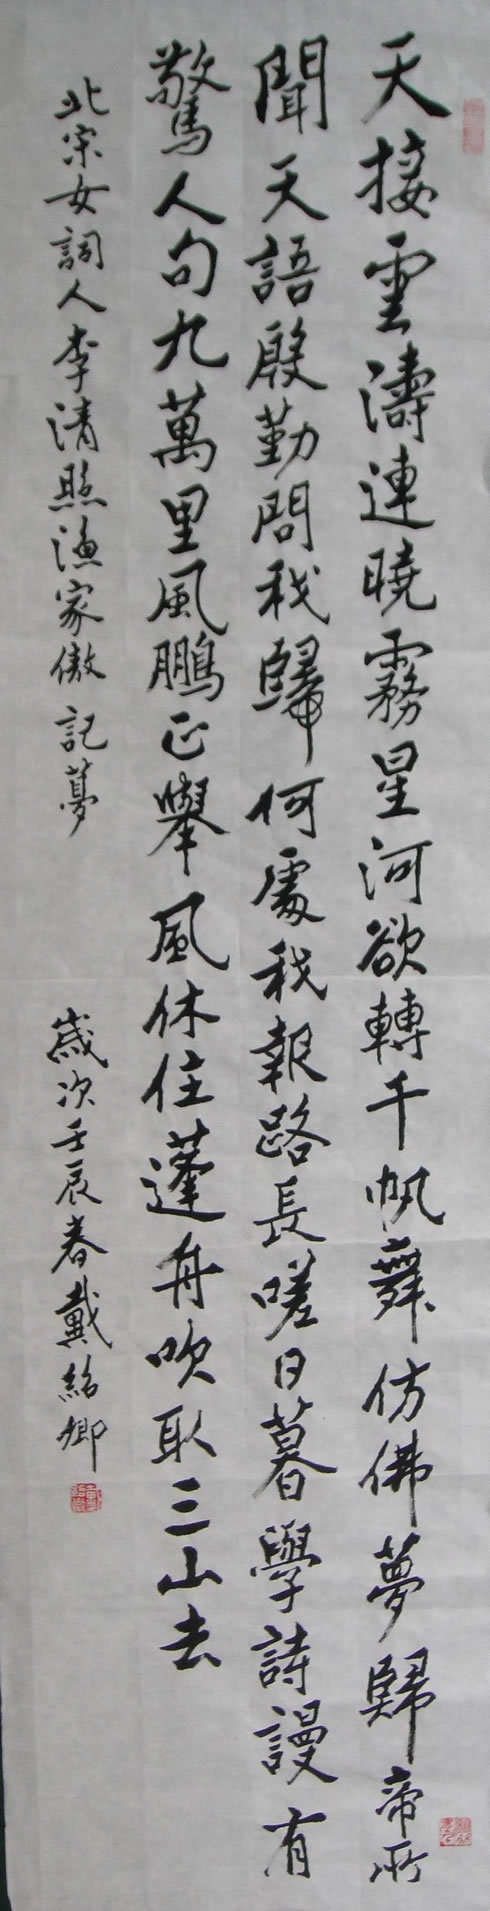 天接雲濤連曉霧星河欲轉千帆舞仿佛夢歸帝所
聞天語殷勤問我歸何處我報路長嗟日暮學詩謾有
驚人句九萬里風鵬正舉風休住蓬舟吹取三山去
北宗女詞人李清照漁家傲記夢
歲次壬辰春戴紹卿